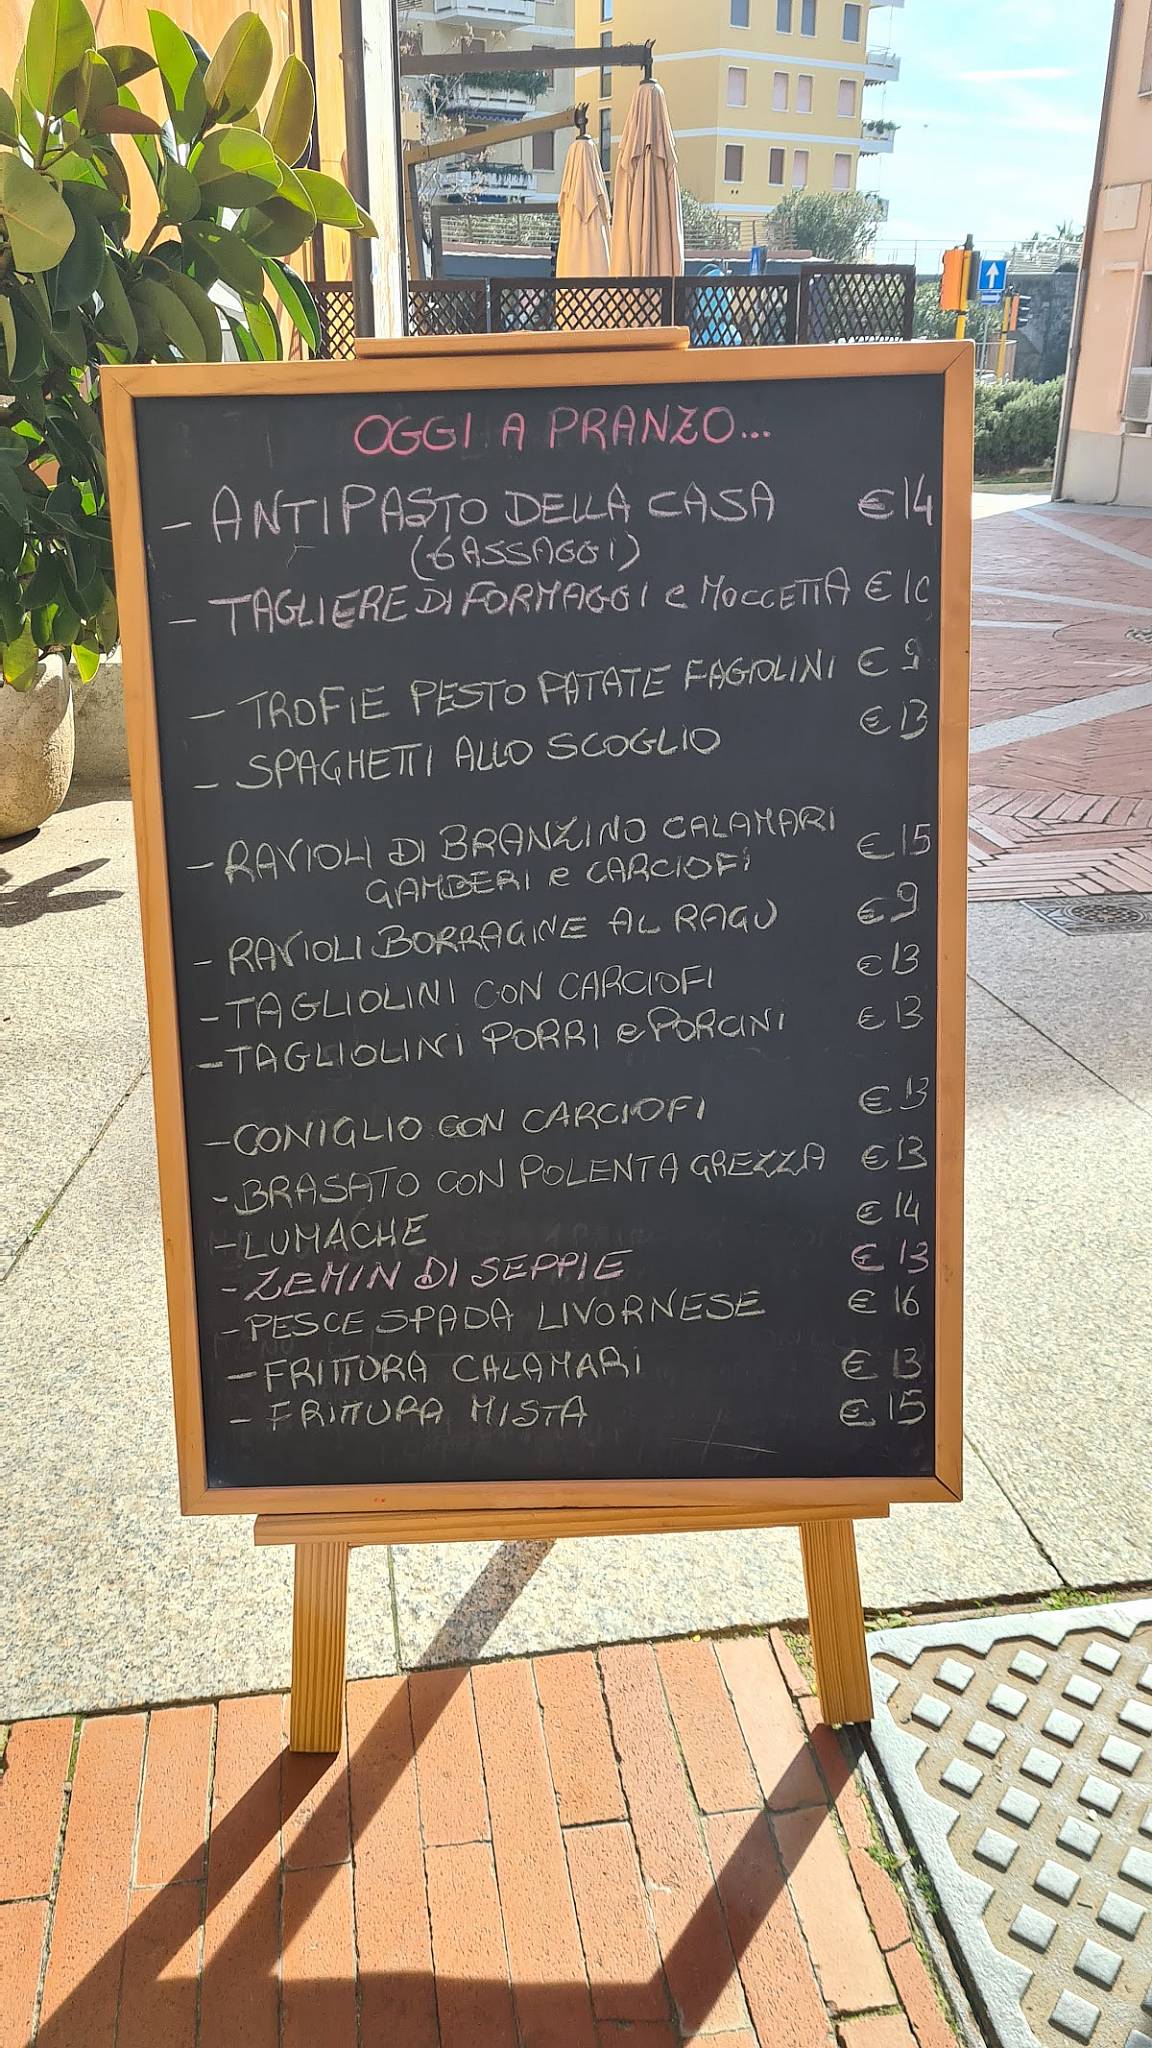 OGGI A PRANZO...
- ANTIPASTO DELLA CASA €14
(6 ASSAGGI)
- TAGLIERE DI FORMAGGI e MOCCETTA €10
- TROFIE PESTO PATATE FAGIOLINI €9
- SPAGHETTI ALLO SCOGLIO €13
- RAVIOLI DI BRANZINO CALAMARI €15
GAMBERI e CARCIOFI
- RAVIOLI BORRAGINE AL RAGU €9
- TAGLIOLINI CON CARCIOFI €13
- TAGLIOLINI PORRI e PORCINI €13
- CONIGLIO CON CARCIOFI €13
- BRASATO CON POLENTA GREZZA €13
- LUMACHE €14
- ZEMIN DI SEPPIE €13
- PESCE SPADA LIVORNESE €16
- FRITTURA CALAMARI €13
- FRITTURA MISTA €15